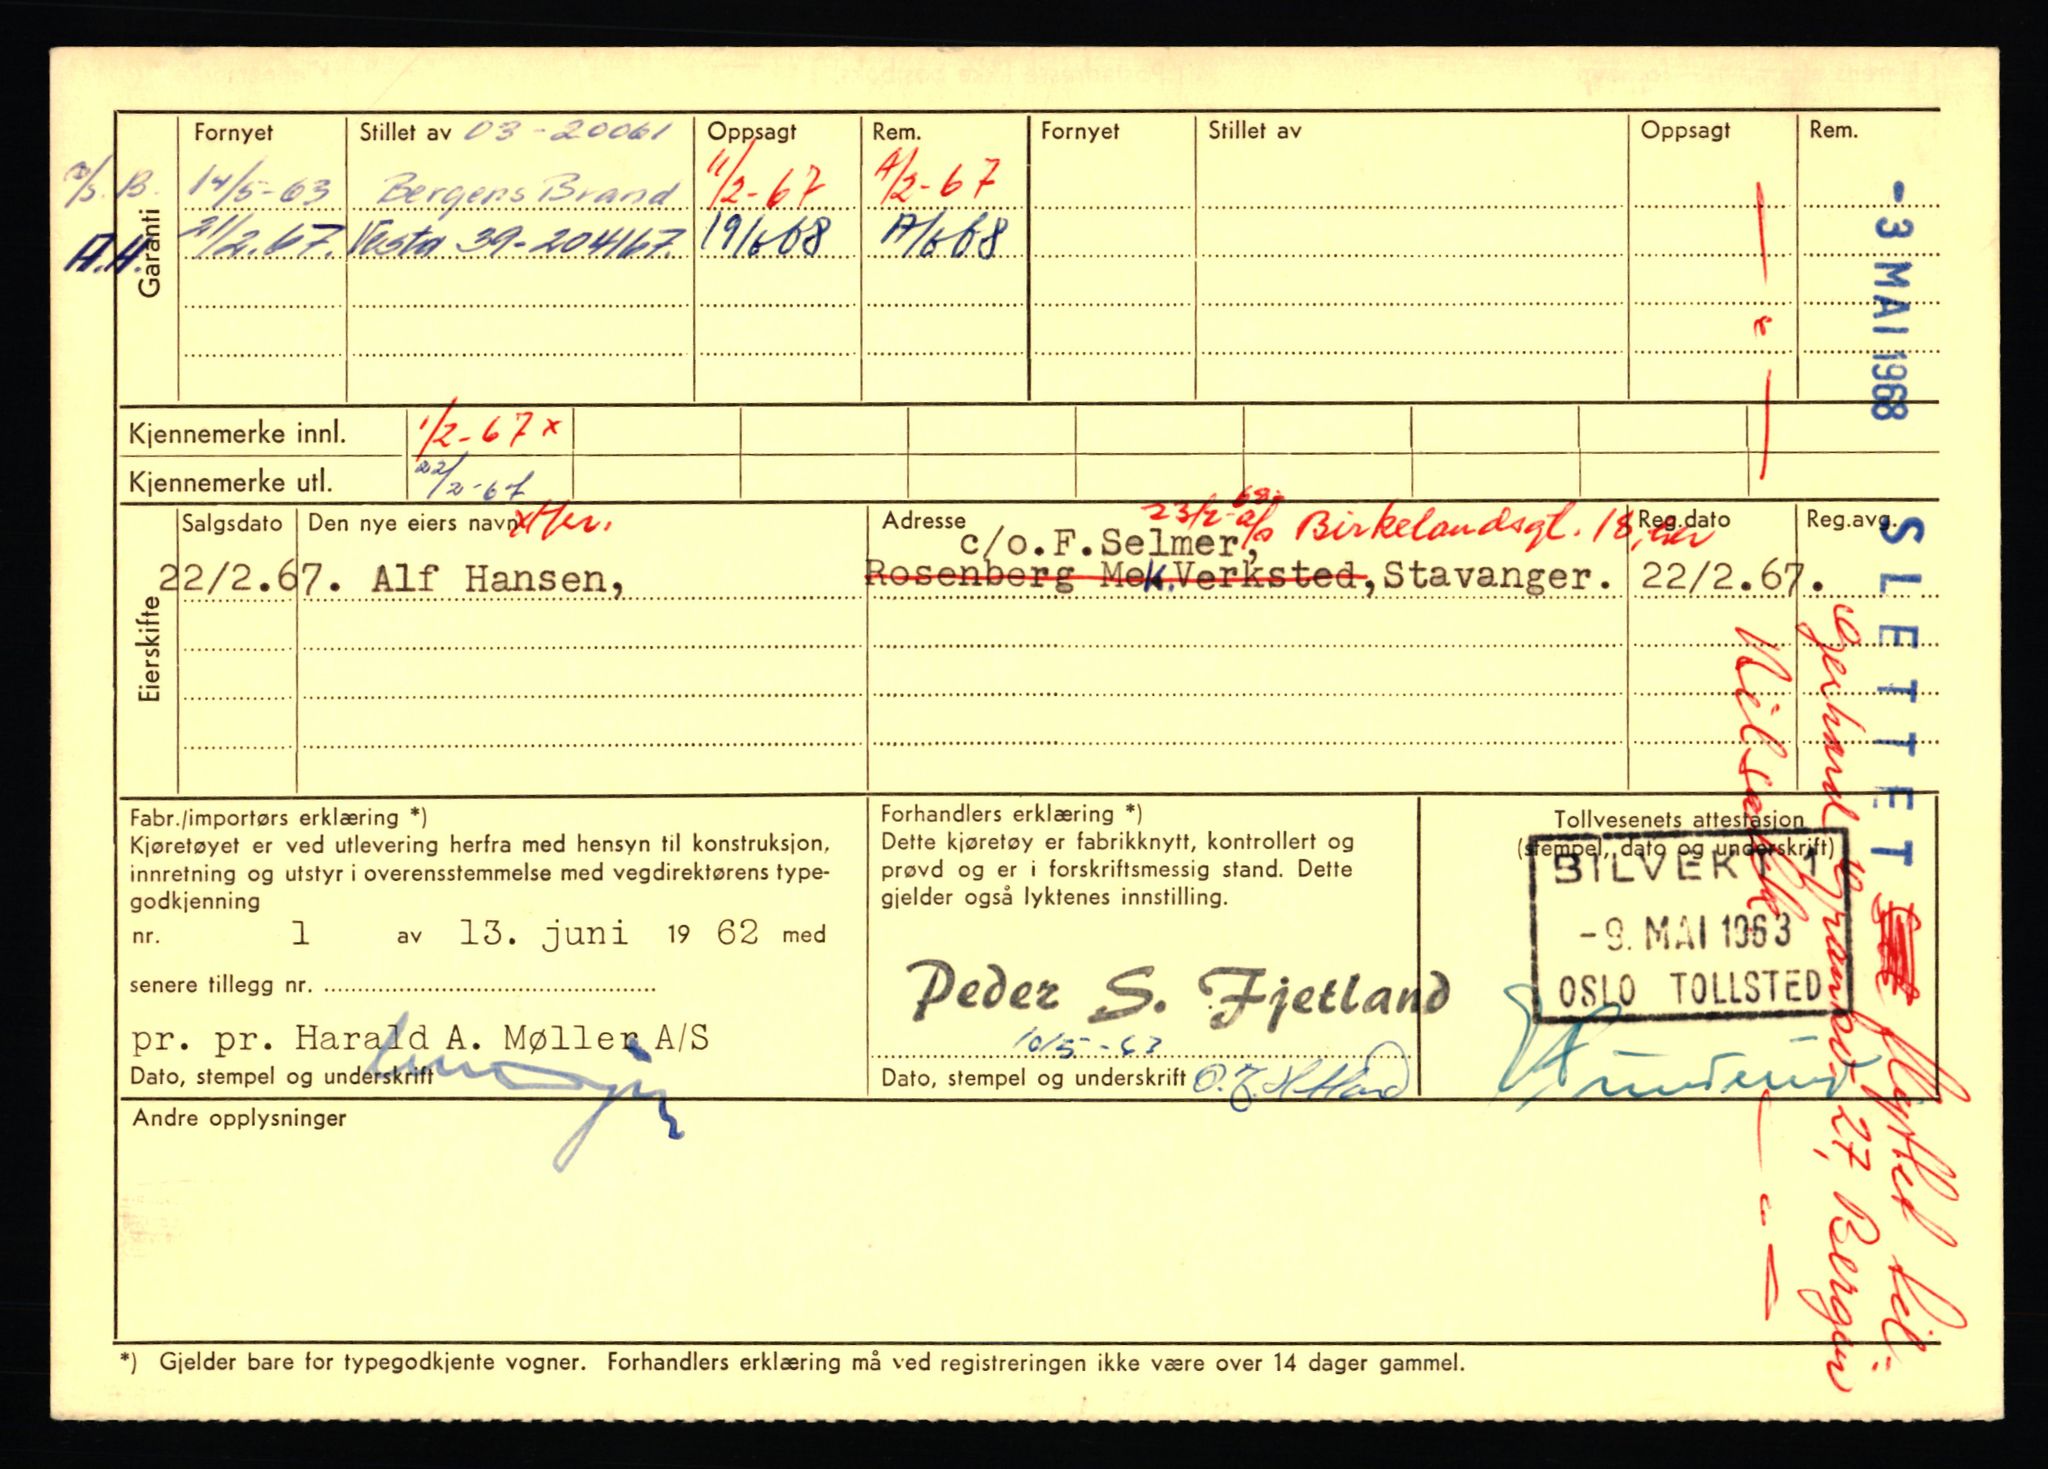 Fornyet Stillet av 03-20061 Oppsagt Rem. Fornyet Stillet av Oppsagt Rem.
B. 14/5-63 Bergens Brand 11/2-67 A/2-67
A.H. 21/2.67. Vesta 39-204167. 19/668 A/668
Garanti
- 3 MAI 1968
Kjennemerke innl. 1/2-67 x
Kjennemerke utl. 22/2-67
Salgsdato Den nye eiers navn Adresse 23/2-68- Reg.dato Reg.avg.
c/o.F.Selmer, Birkelandsgt. 18,
22/2.67. Alf Hansen, Rosenberg Mek.Verksted,Stavanger. 22/2.67.
Eierskifte
SLETTET
flyttet til:
Gerhard Granbo 27, Bergen
Fabr./importørs erklæring *)
Kjøretøyet er ved utlevering herfra med hensyn til konstruksjon,
innretning og utstyr i overensstemmelse med vegdirektørens type-
godkjenning
nr. 1 av 13. juni 19 62 med
senere tillegg nr.
pr. pr. Harald A. Møller A/S
Dato, stempel og underskrift
Forhandlers erklæring *)
Dette kjøretøy er fabrikknytt, kontrollert og
prøvd og er i forskriftsmessig stand. Dette
gjelder også lyktenes innstilling.
Peder S. Fjetland
10/5-63
Dato, stempel og underskrift
Tollvesenets attestasjon
(stempel, dato og underskrift)
BILVEKT 1
-9. MAI 1963
OSLO TOLLSTED
Andre opplysninger
*) Gjelder bare for typegodkjente vogner. Forhandlers erklæring må ved registreringen ikke være over 14 dager gammel.